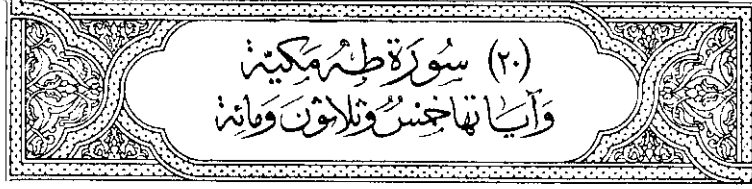 (٢٠) سُورَة طٰهٰ مَكِيَّة
وَآيَاتُهَا خَمْسٌ وَثَلَاثُونَ وَمِائَة